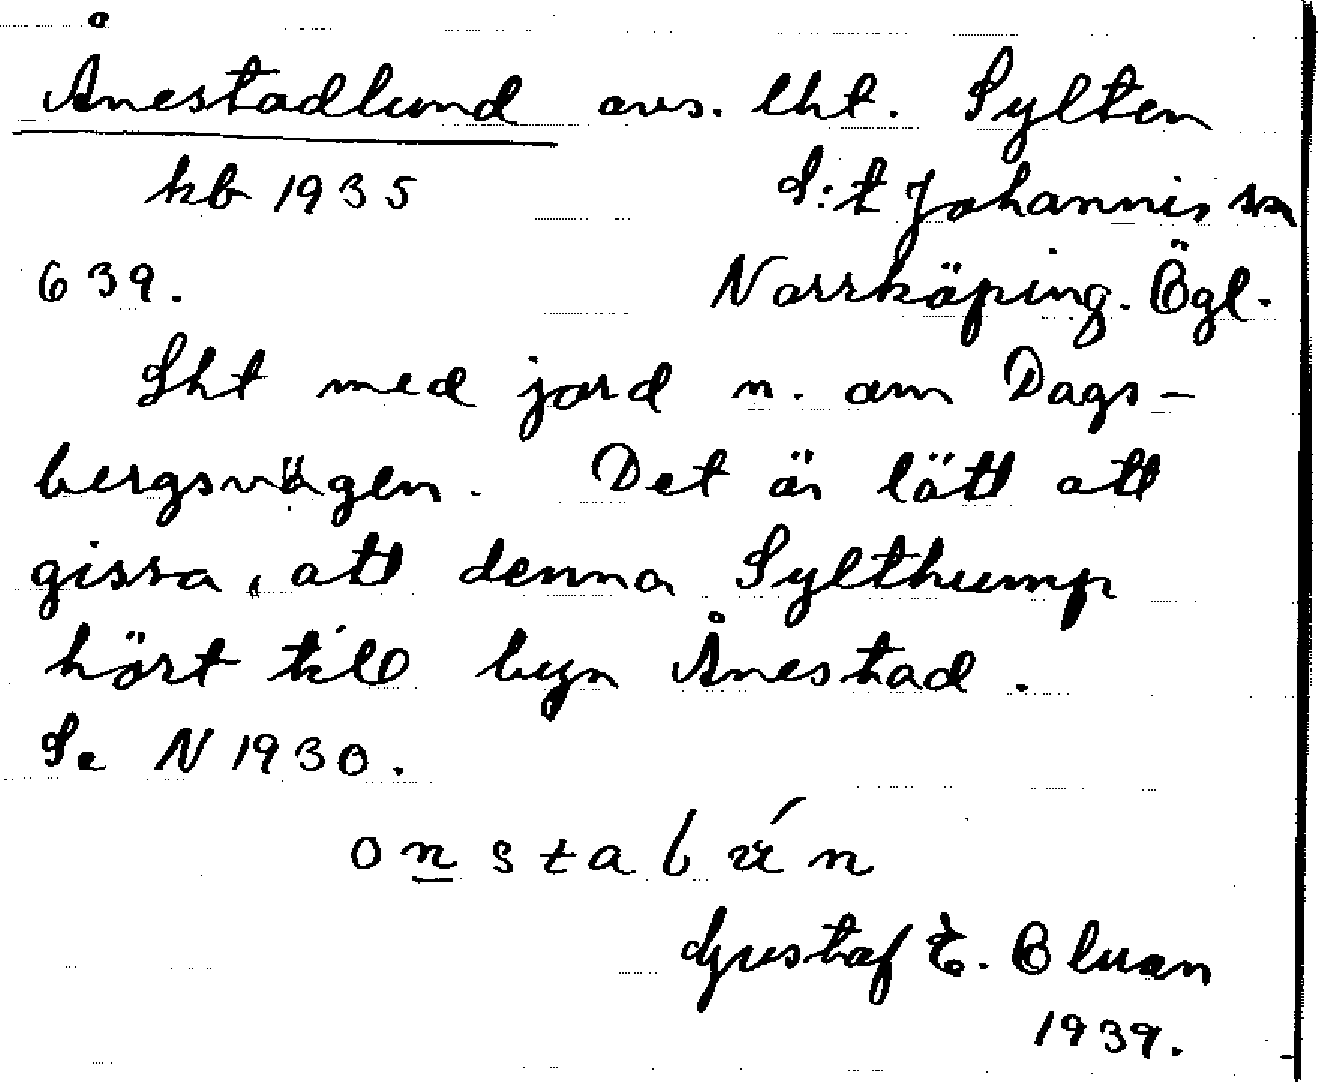 Ånestadlund avs. lht. Sylten
kb 1935 S:t Johannis sn
639. Norrköping. Ögl.
Lht med jord n. om Dags-
bergsvägen. Det är lätt att
gissa, att denna Sylthump
hört till byn Ånestad.
Se N 1930.
onstab
Gustaf E. Bluan
1939.